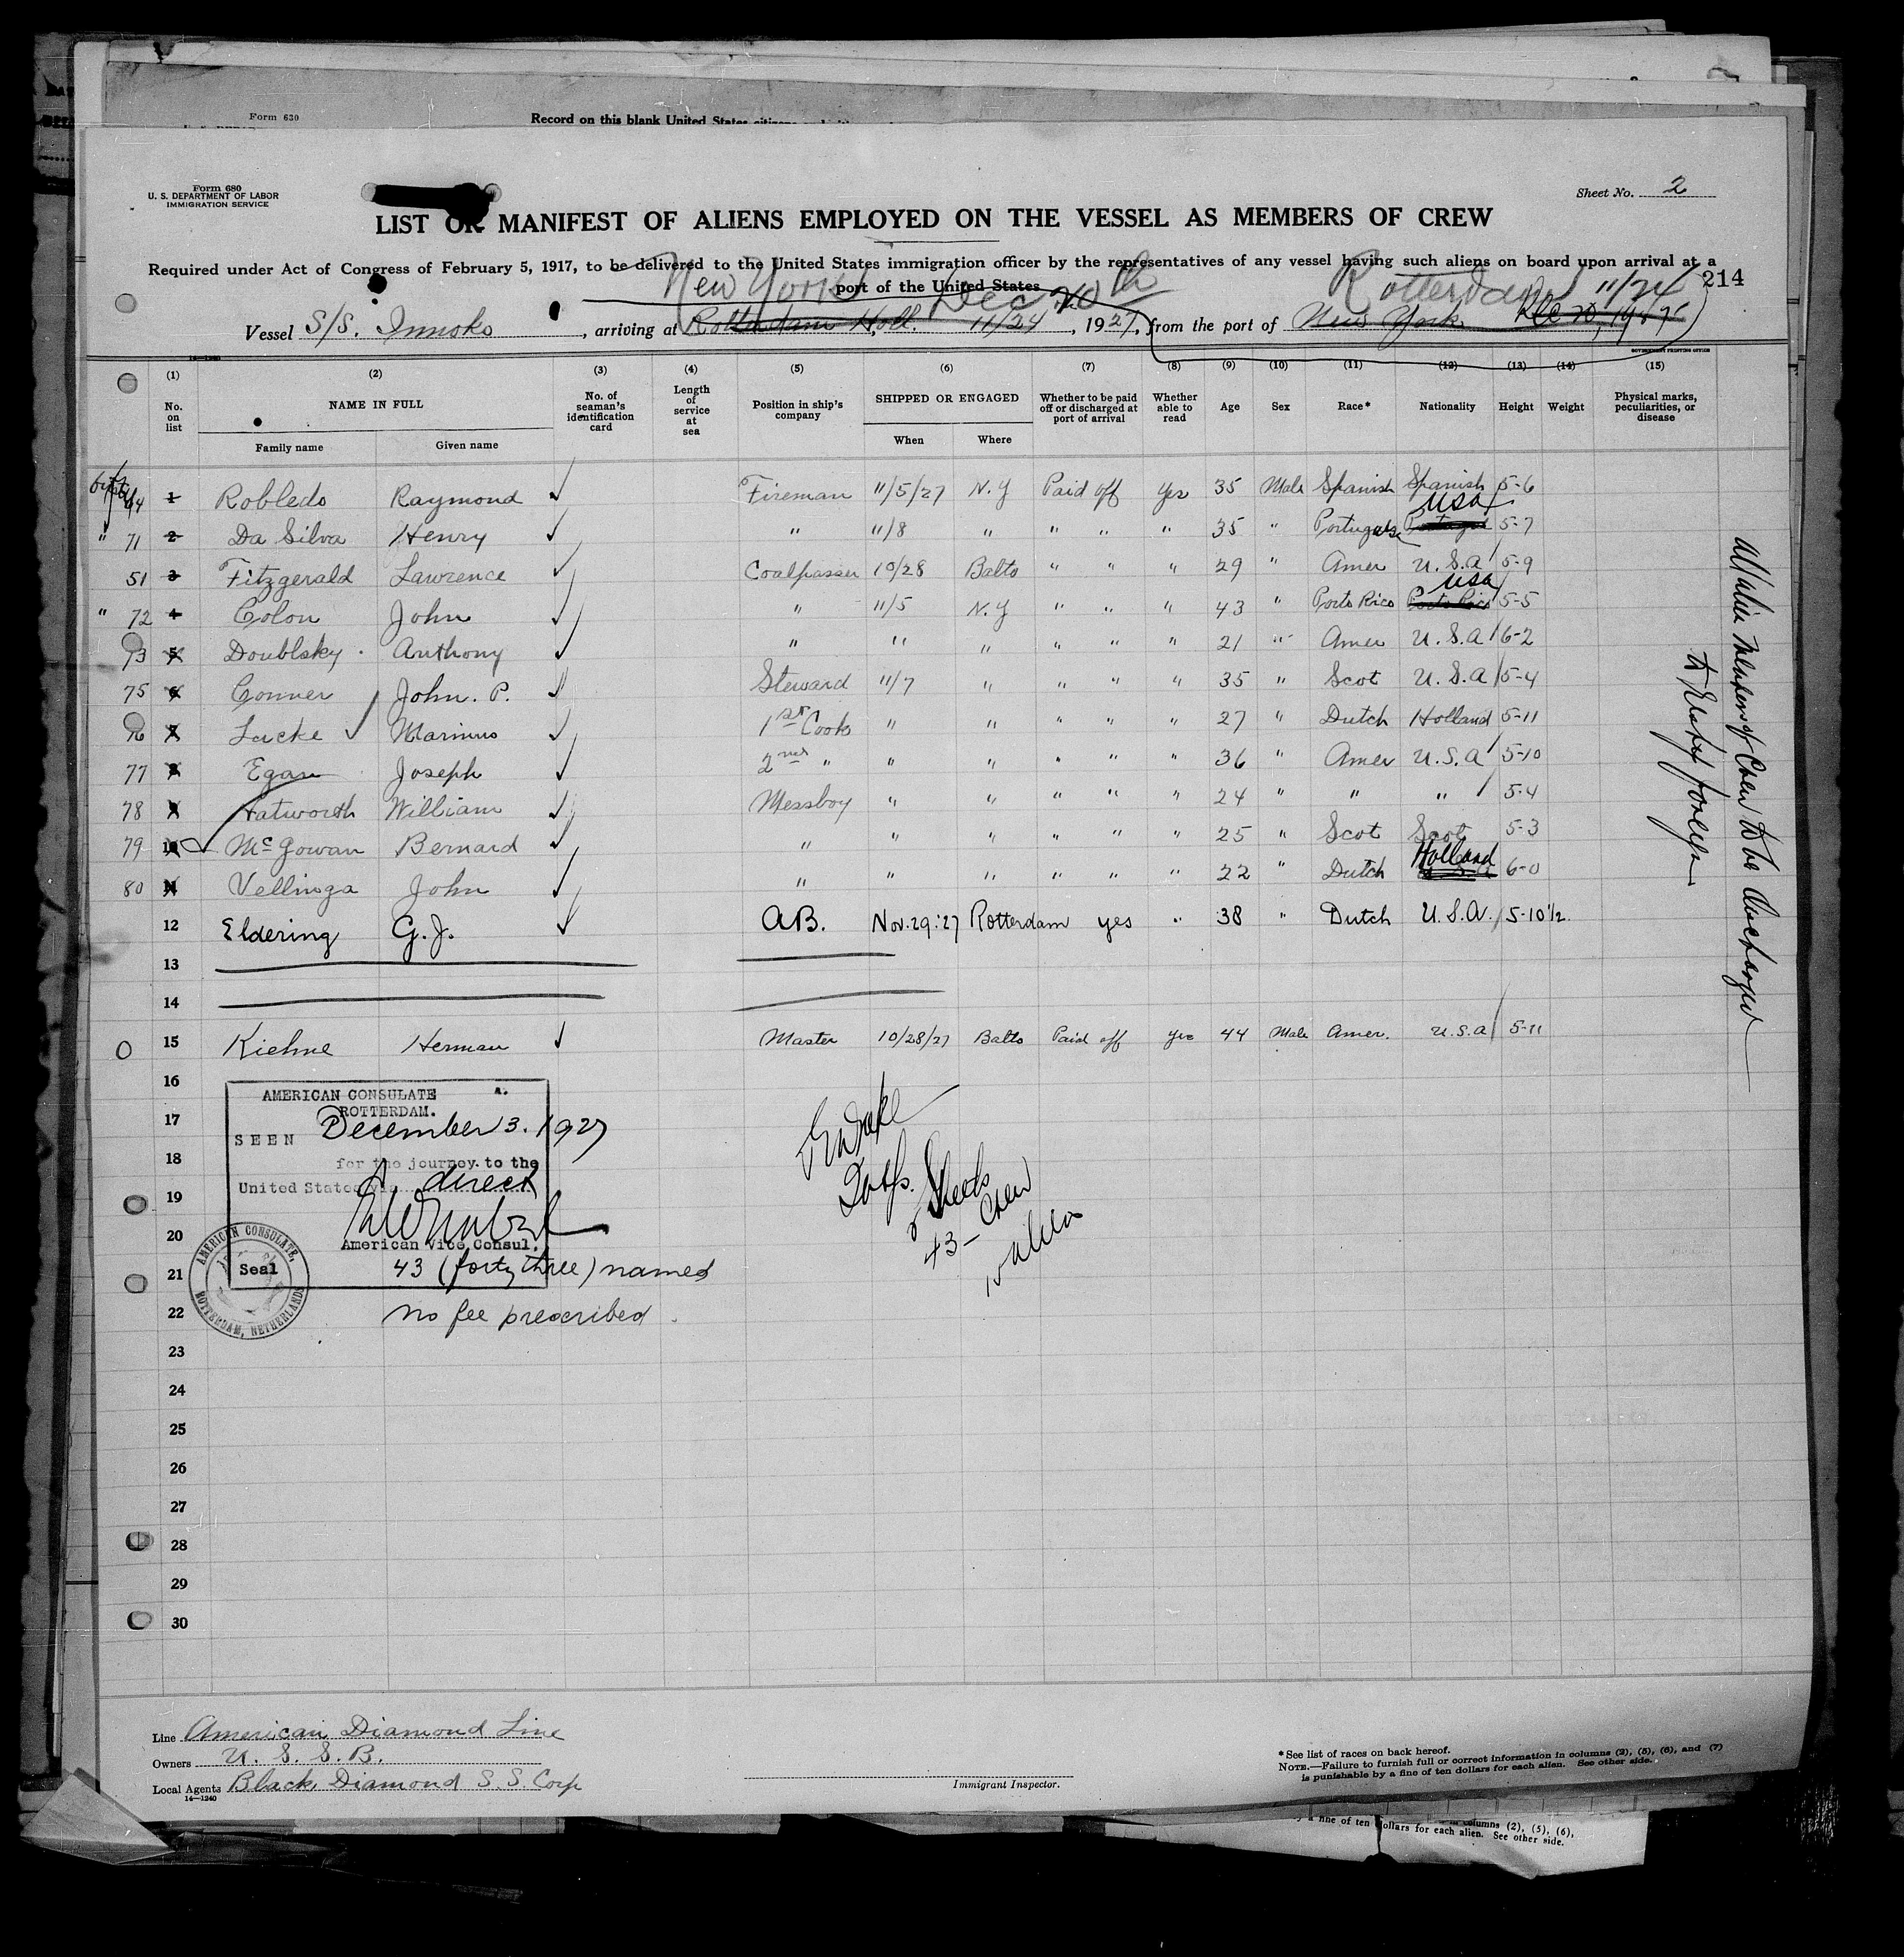 Form 630
Record on this blank United States
Form 680
U. S. DEPARTMENT OF LABOR
IMMIGRATION SERVICE
Sheet No. 2
LIST OR MANIFEST OF ALIENS EMPLOYED ON THE VESSEL AS MEMBERS OF CREW
Required under Act of Congress of February 5, 1917, to be delivered to the United States immigration officer by the representatives of any vessel having such aliens on board upon arrival at a
port of the United States
214
New York Dec 20th Rotterdam 11/24
Vessel S/S. Innoko, arriving at Rotterdam Holl. 11/24, 1927, from the port of New York Dec 20, 1927
14—1240
GOVERNMENT PRINTING OFFICE
(1) (2) (3) (4) (5) (6) (7) (8) (9) (10) (11) (12) (13) (14) (15)
No. on list NAME IN FULL No. of seaman's identification card Length of service at sea Position in ship's company SHIPPED OR ENGAGED Whether to be paid off or discharged at port of arrival Whether able to read Age Sex Race* Nationality Height Weight Physical marks, peculiarities, or disease
Family name Given name When Where
1 Robledo Raymond Fireman 11/5/27 N.Y Paid off Yes 35 Male Spanish Spanish 5-6
USA
" 71 2 Da Silva Henry " 11/8 " " " " 35 " Portuguese Portugal 5-7
51 3 Fitzgerald Lawrence Coalpasser 10/28 Balto " " " 29 " Amer U.S.A 5-9
USA
" 72 4 Colon John " 11/5 N.Y " " " 43 " Porto Rico Porto Rico 5-5
73 5 Doublsky Anthony " " " " " " 21 " Amer U.S.A 6-2
75 6 Conner John. P. Steward 11/7 " " " " 35 " Scot U.S.A 5-4
76 7 Lucke Marinus 1st Cook " " " " " 27 " Dutch Holland 5-11
77 8 Egan Joseph 2nd " " " " " " 36 " Amer U.S.A 5-10
78 9 Hatworth William Messboy " " " " " 24 " " " 5-4
79 10 McGowan Bernard " " " " " " 25 " Scot Scot 5-3
Holland
80 11 Vellinga John " " " " " " 22 " Dutch U.S.A 6-0
12 Eldering G.J. AB. Nov. 29. '27 Rotterdam yes " 38 " Dutch U.S.A. 5-10 1/2.
13
14
15 Kiehne Herman Master 10/28/27 Balto Paid off yes 44 Male Amer. U.S.A 5-11
16
17
18
19
20
21
22
23
24
25
26
27
28
29
30
All alien Members of Crew to be discharged
to Reship foreign
AMERICAN CONSULATE
ROTTERDAM.
SEEN December 3. 1927
for the journey to the
United States via direct
American Vice Consul.
43 (forty three) named
no fee prescribed
Seal
AMERICAN CONSULATE,
ROTTERDAM, NETHERLANDS
2 Sheets
43- Crew
Line American Diamond Line
Owners U. S. S. B.
Local Agents Black Diamond S.S. Corp
14—1240
Immigrant Inspector.
*See list of races on back hereof.
NOTE.—Failure to furnish full or correct information in columns (2), (5), (6), and (7)
is punishable by a fine of ten dollars for each alien. See other side.
columns (2), (5), (6),
fine of ten dollars for each alien. See other side.